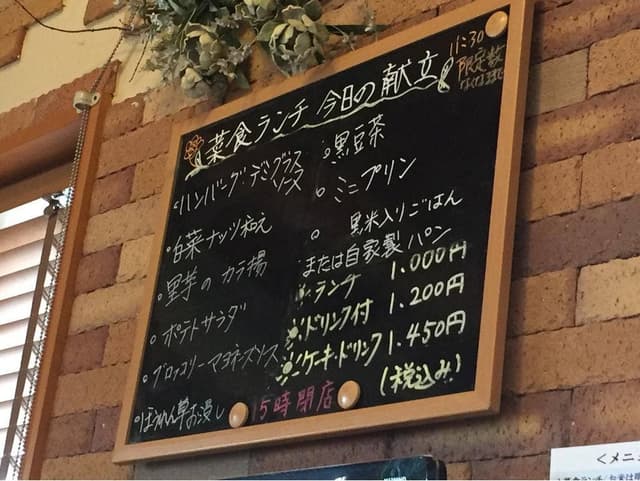 菜食ランチ 今日の献立
11:30
限定数
なくなるまで
ハンバーグ・デミグラス
ソース
白菜ナッツ和え
里芋のカラ揚
ポテトサラダ
ブロッコリーマヨネーズソース
ほうれん草お浸し
黒豆茶
ミニプリン
黒米入りごはん
または自家製パン
ランチ 1.000円
ドリンク付 1.200円
ケーキ・ドリンク 1.450円
(税込み)
15時閉店
<メニュ